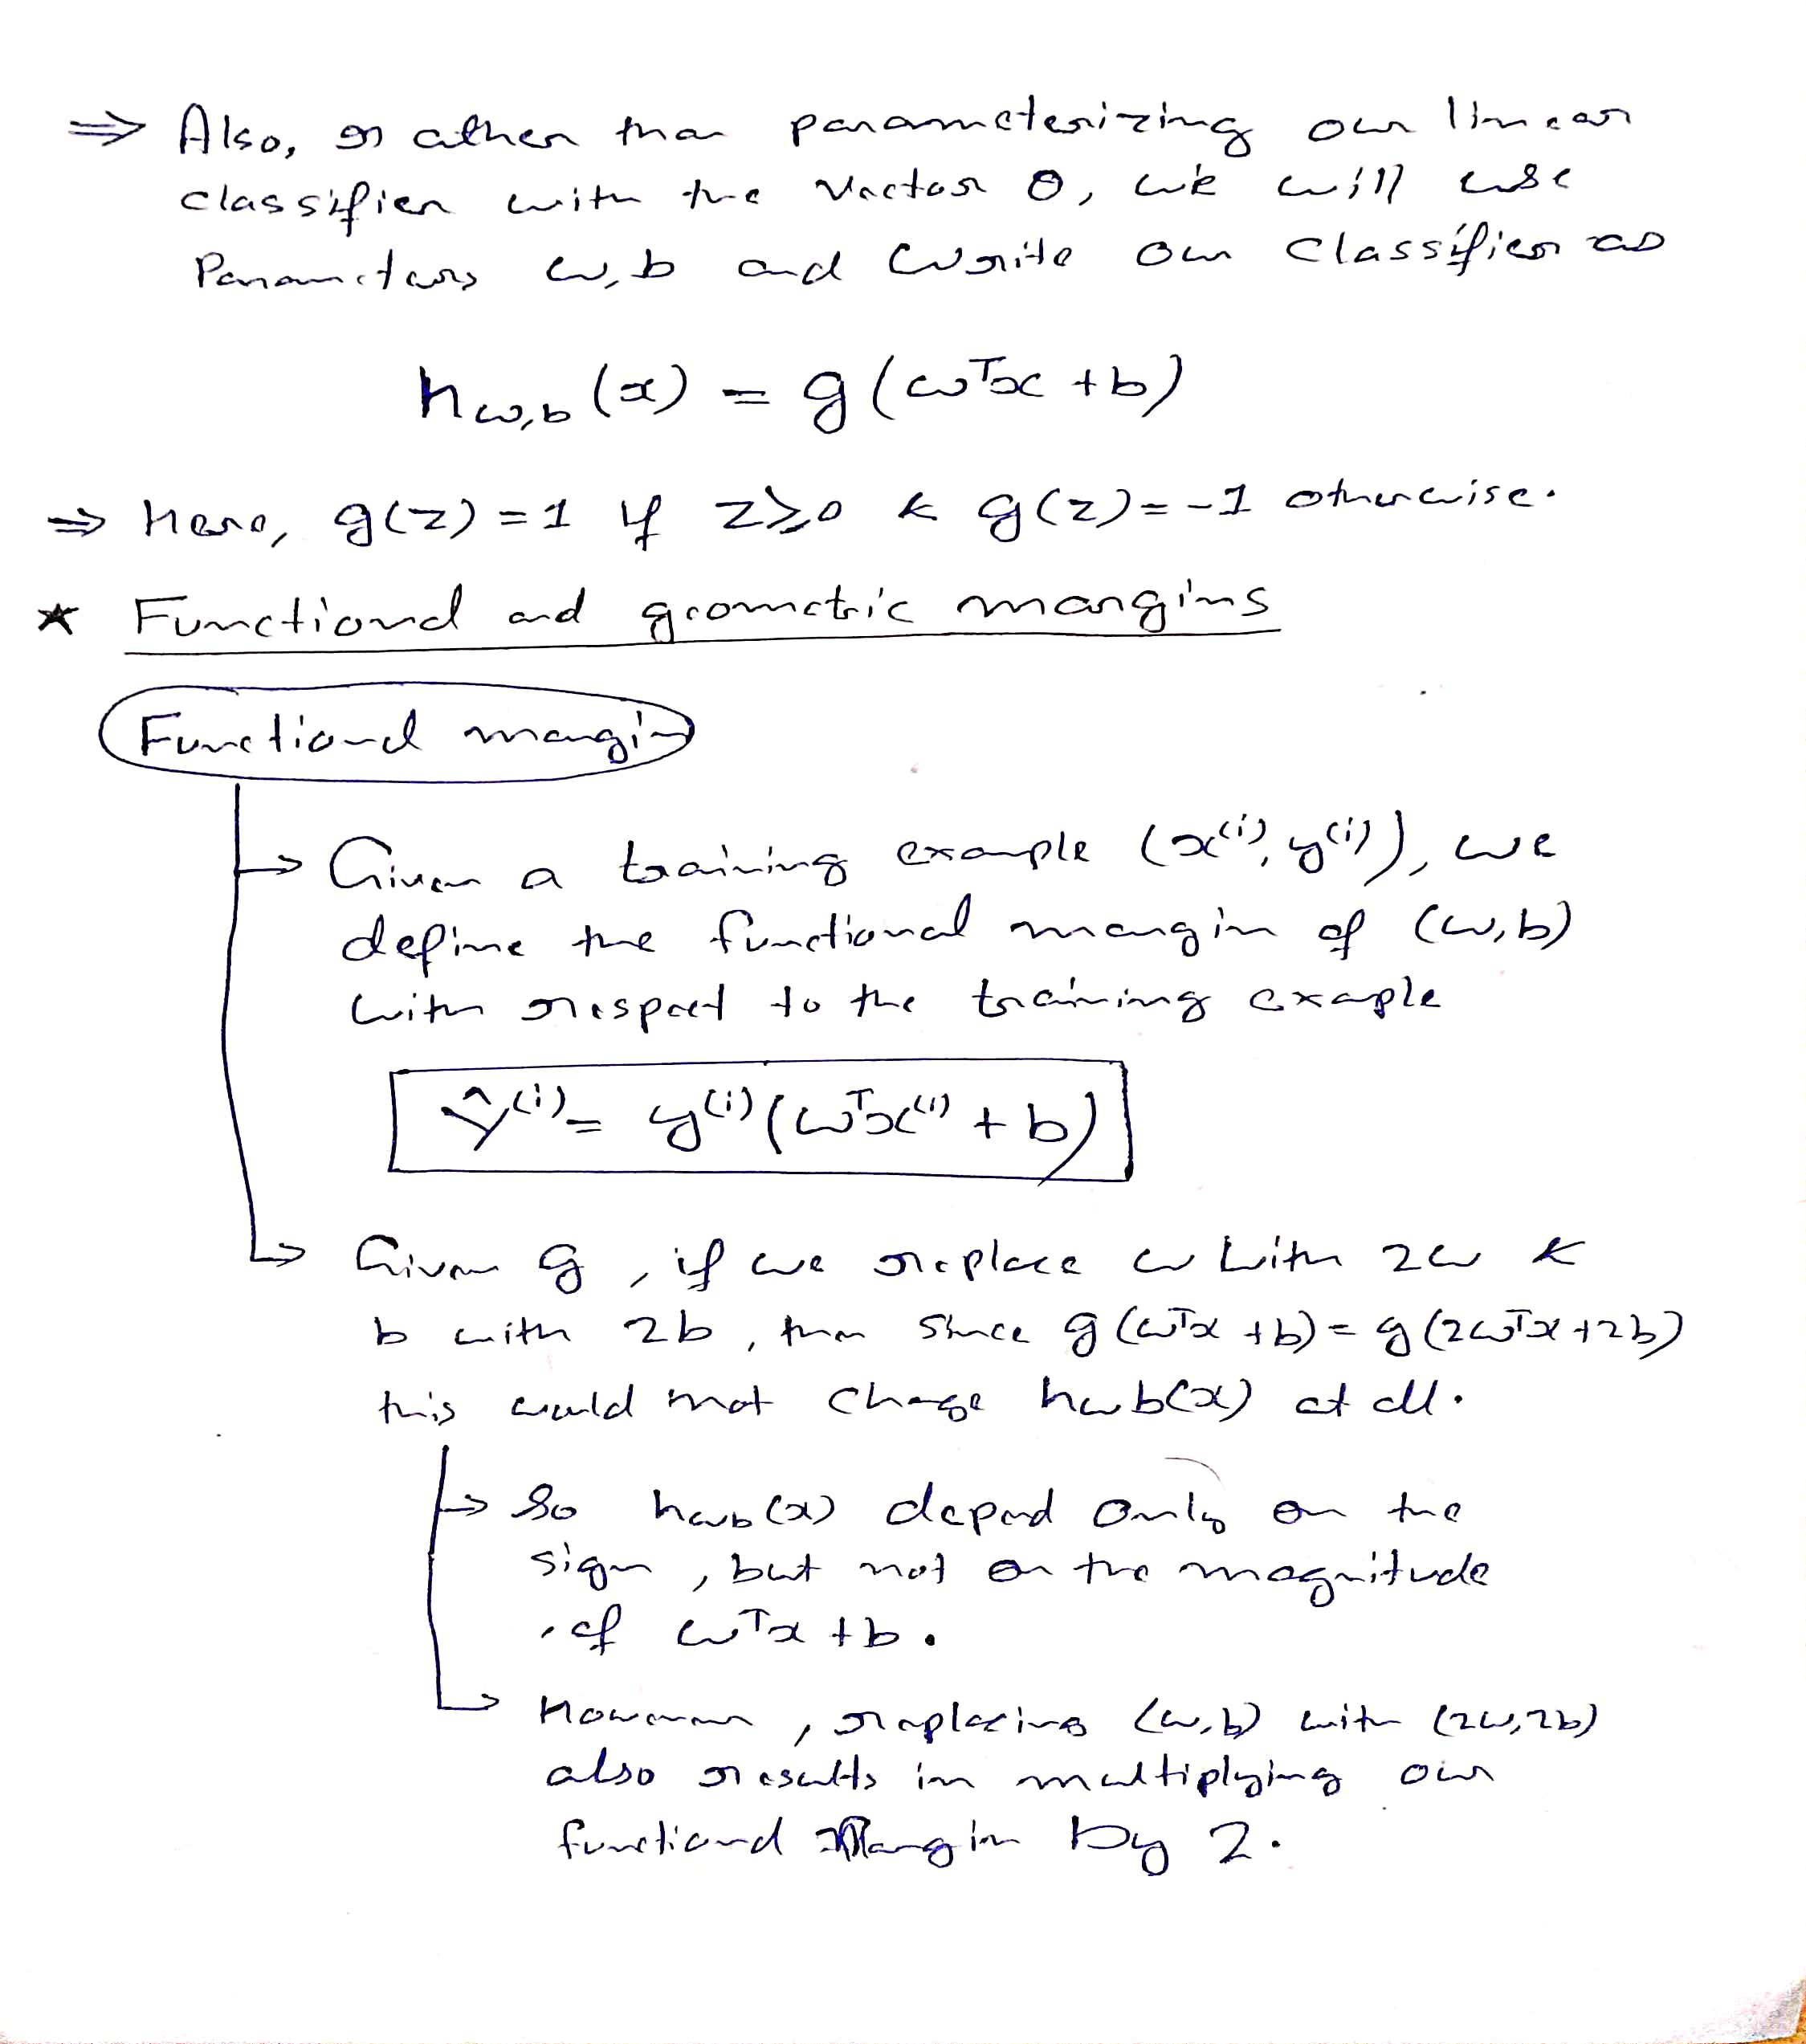 ⇒ Also, rather than parameterizing our linear
classifier with the vector θ, we will use
Parameters w,b and write our classifier as
h w,b (x) = g(wᵀx + b)
⇒ Here, g(z) = 1 if z ≥ 0 & g(z) = -1 otherwise.
* Functional and geometric margins
Functional margin
→ Given a training example (x⁽ⁱ⁾, y⁽ⁱ⁾), we
define the functional margin of (w,b)
with respect to the training example
γ̂⁽ⁱ⁾ = y⁽ⁱ⁾(wᵀx⁽ⁱ⁾ + b)
→ Given g, if we replace w with 2w &
b with 2b, then since g(wᵀx + b) = g(2wᵀx + 2b)
this would not change hwb(x) at all.
→ So hwb(x) depend only on the
sign, but not on the magnitude
of wᵀx + b.
→ However, replacing (w,b) with (2w,2b)
also results in multiplying our
functional Margin by 2.